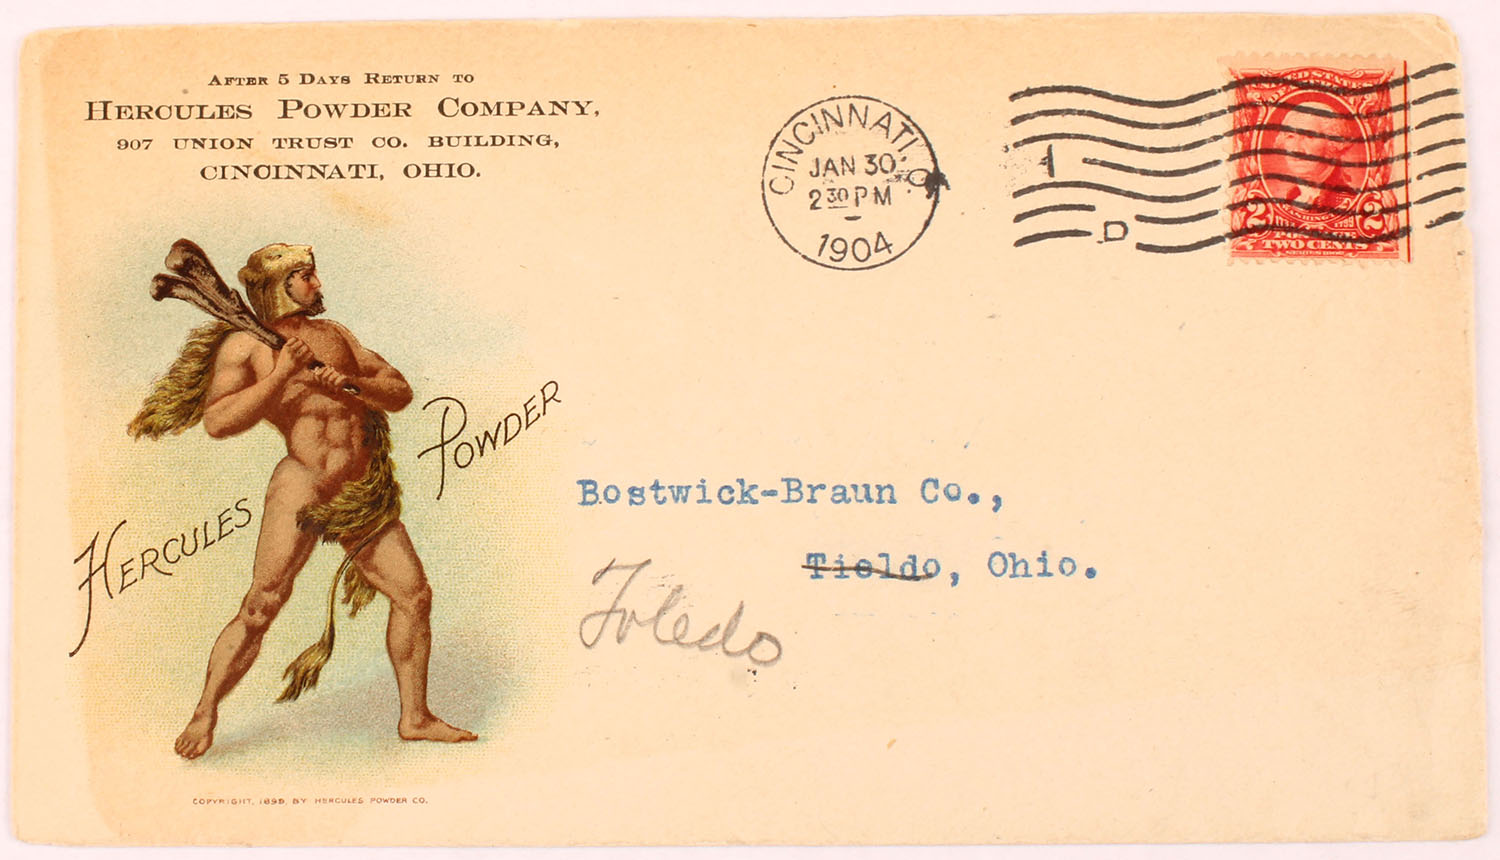 AFTER 5 DAYS RETURN TO
HERCULES POWDER COMPANY,
907 UNION TRUST CO. BUILDING,
CINCINNATI, OHIO.
CINCINNATI, O.
JAN 30
2 30 PM
1904
1
D
UNITED STATES
2 2
WASHINGTON 1799
POSTAGE
TWO CENTS
SERIES 1902
HERCULES POWDER
Bostwick-Braun Co.,
Tieldo, Ohio.
Toledo
COPYRIGHT, 1898, BY HERCULES POWDER CO.